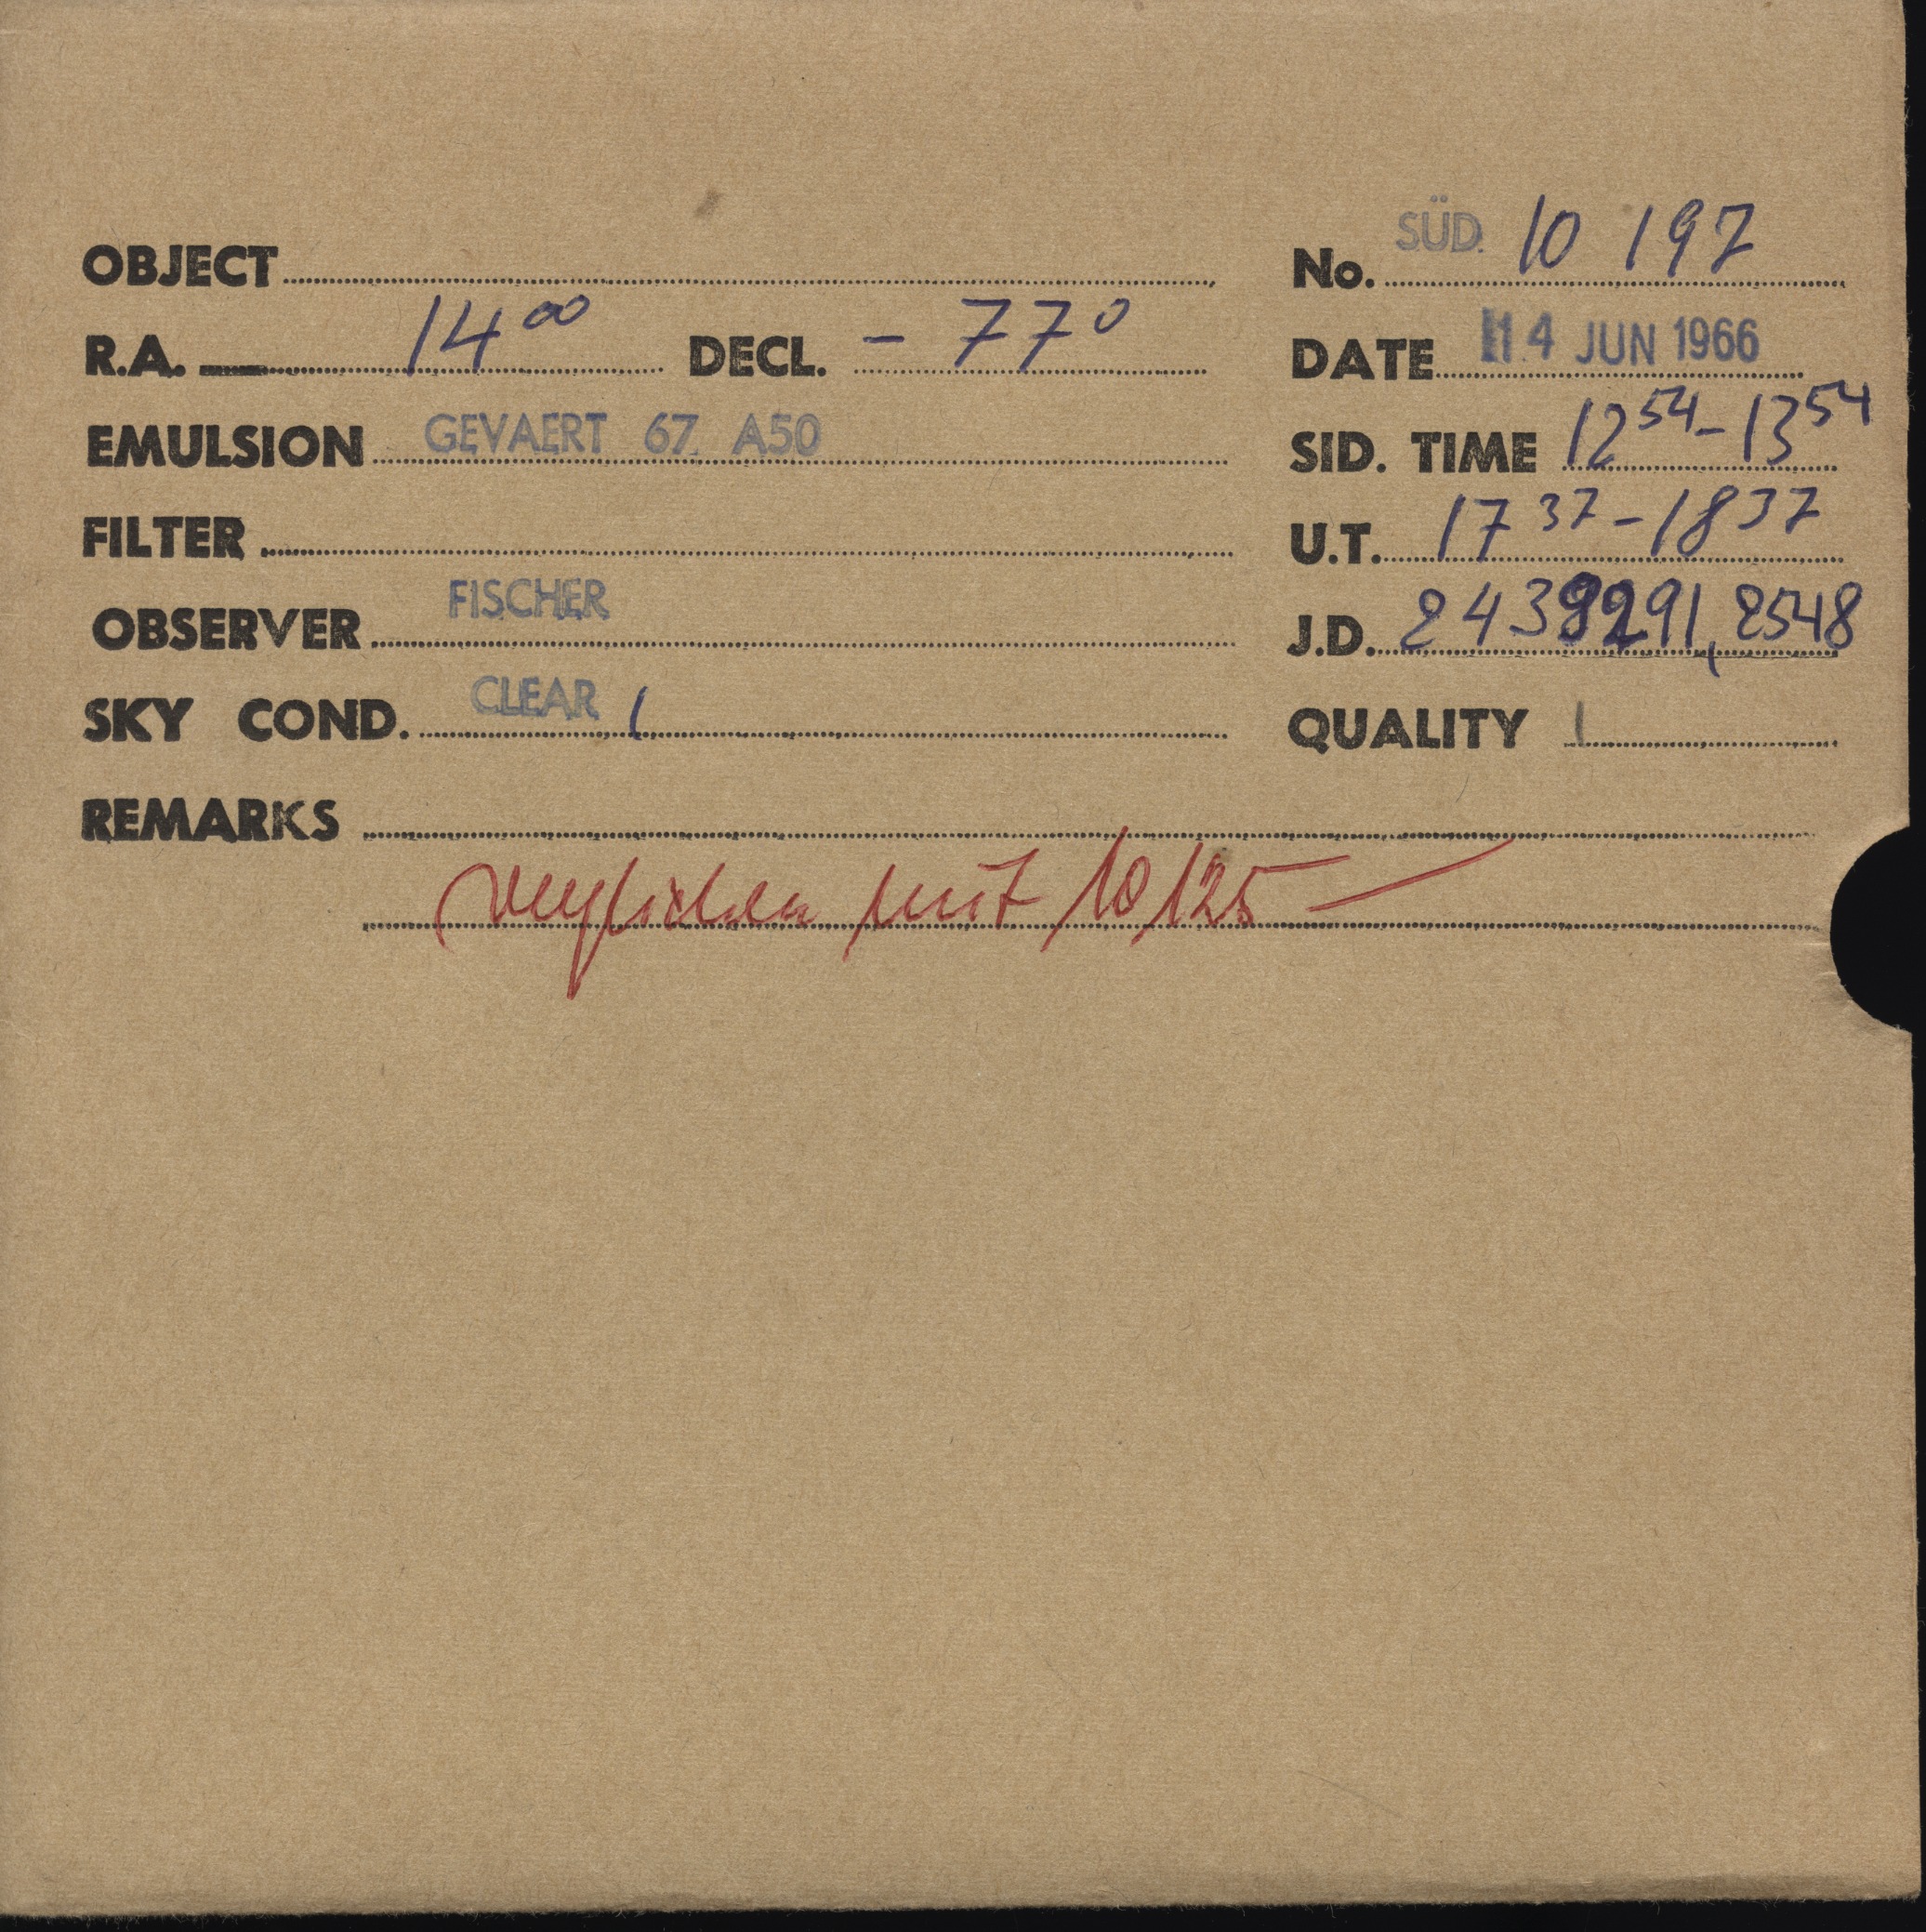 OBJECT
No. SÜD. 10 197
R.A. 14⁰⁰ DECL. - 77⁰
DATE 14 JUN 1966
EMULSION GEVAERT 67. A50
SID. TIME 12⁵⁴-13⁵⁴
FILTER
U.T. 17³⁷-18³⁷
OBSERVER FISCHER
J.D. 2439291,2548
SKY COND. CLEAR 1
QUALITY 1
REMARKS
verglichen mit 10125 —